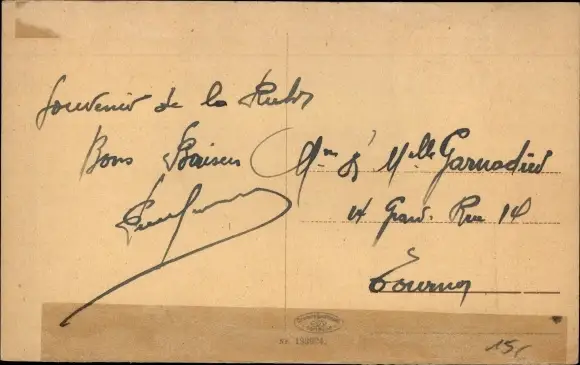 Souvenir de la Ruhr
Bons Baisers
Mme & Melle Garnadier
14 Grand. Rue 14
Tournus
15c